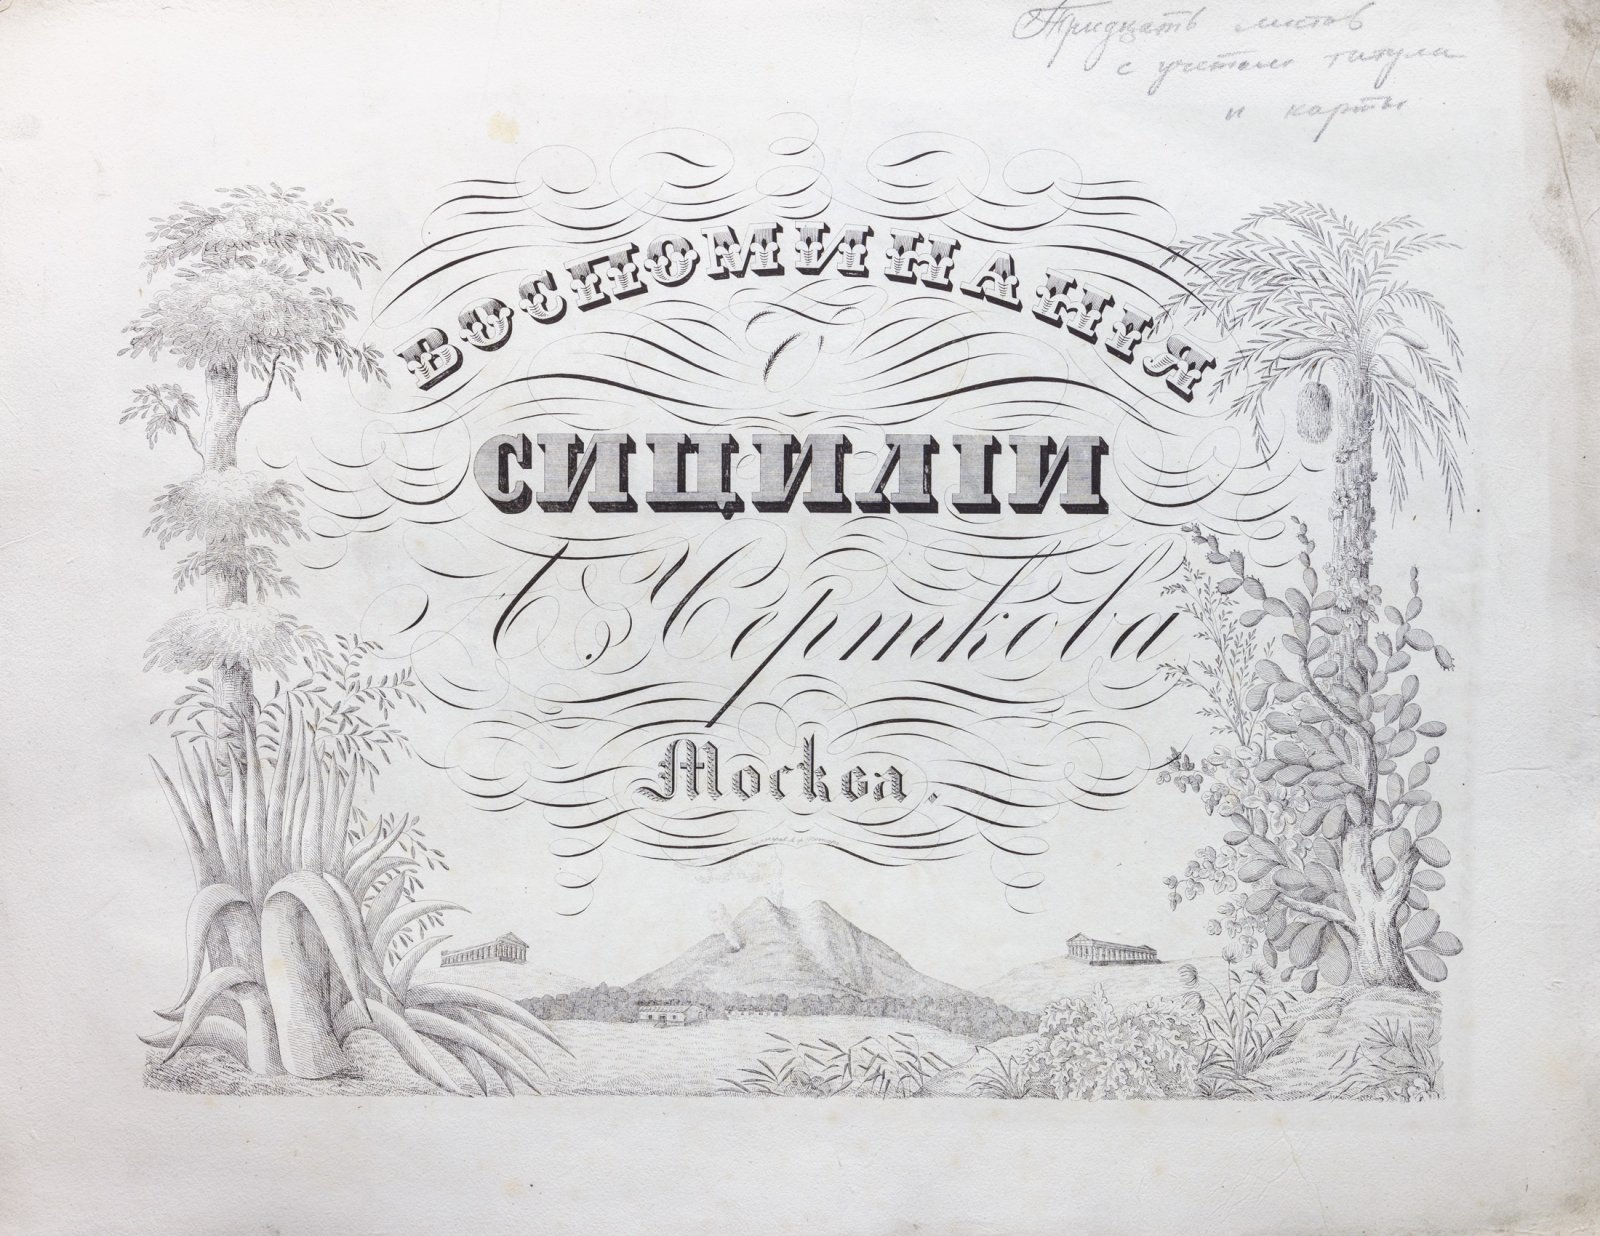 Тридцать листов
с учетом титула
и карты
ВОСПОМИНАНІЯ
О
СИЦИЛІИ
А. Черткова
Москва.